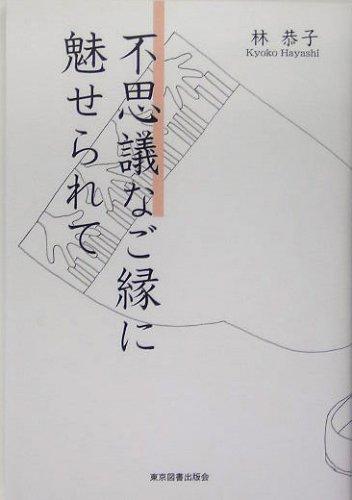 不思議なご縁に
魅せられて
林 恭子
Kyoko Hayashi
東京図書出版会